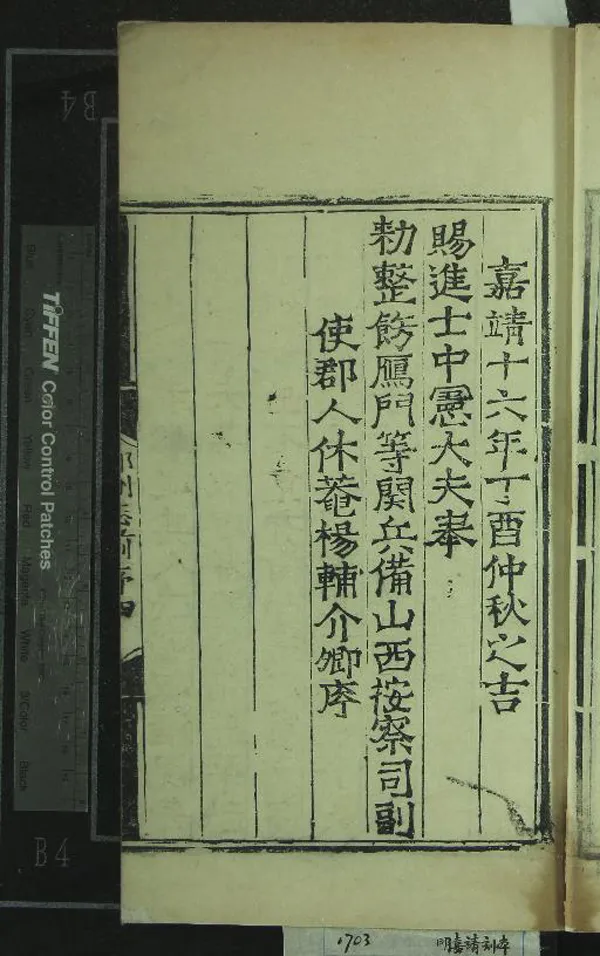 嘉靖十六年丁酉仲秋之吉
賜進士中憲大夫奉
勑整飭鴈門等関兵備山西按察司副
使郡人休菴楊輔介卿序
州志前序四
TIFFEN Color Control Patches
Blue
Cyan
Green
Yellow
Red
Magenta
White
3/Color
Black
B4
B4
1703
明嘉靖刻本